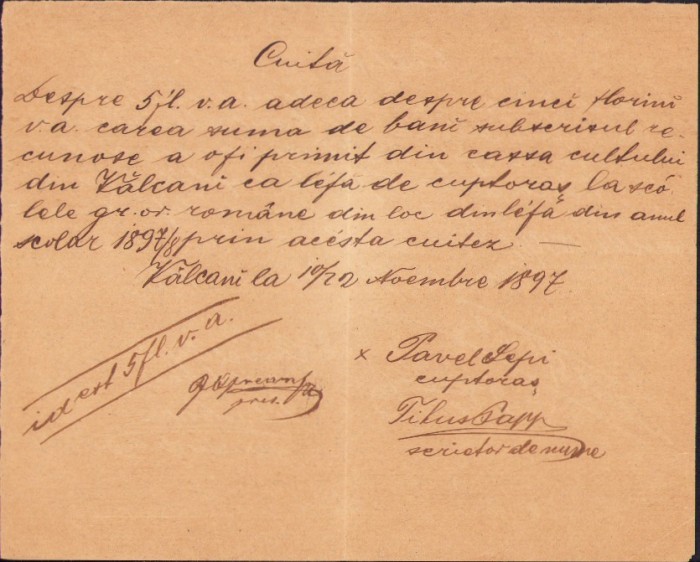 Cuită
Despre 5 fl. v. a. adeca despre cinci florini
v. a. carea suma de bani subscrisul re-
cunosc a ofi primit din cassa cultului
din Vălcani ca léfă de cuptoraș la scó-
lele gr. or. române din loc din léfă din anul
scolar 1897/8 prin acésta cuitez. —
Vălcani la 10/22 Noembre 1897.
id est 5 fl. v. a.
pres.
x Pavel Sepi
cuptoraș
Titus Papp
scrietor de nume